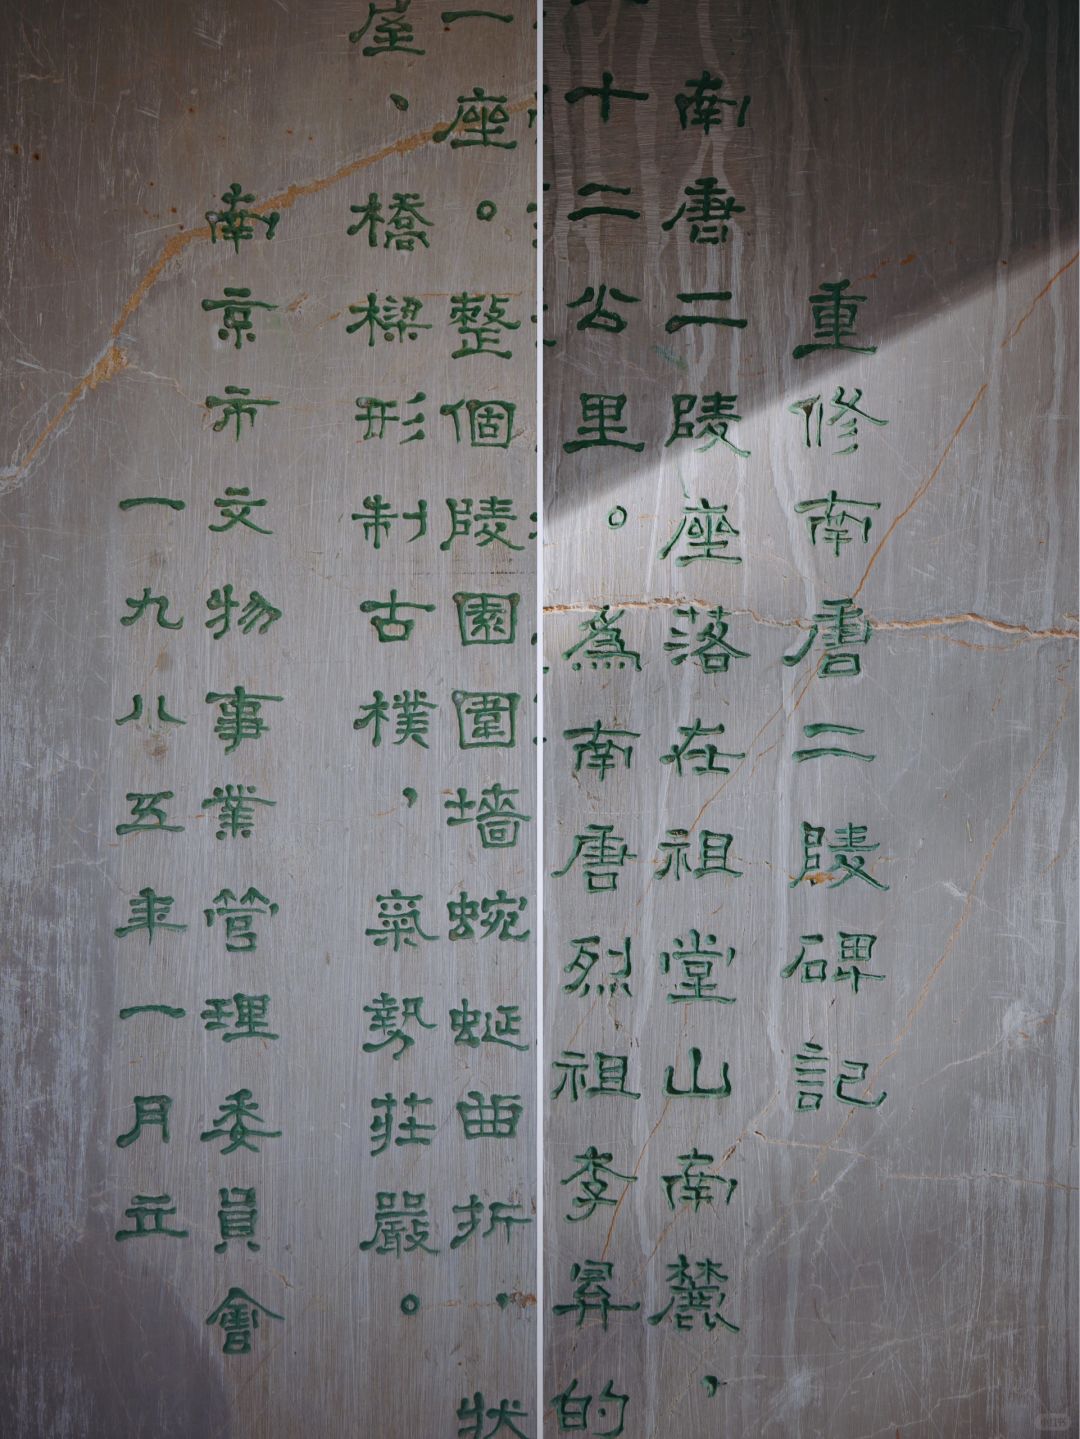 重修南唐二陵碑記
南唐二陵座落在祖堂山南麓，
十二公里。為南唐烈祖李昪的
一座。整個陵園圍墻蜿蜒曲折，狀
屋、橋樑形制古樸，氣勢莊嚴。
南京市文物事業管理委員會
一九八五年一月立